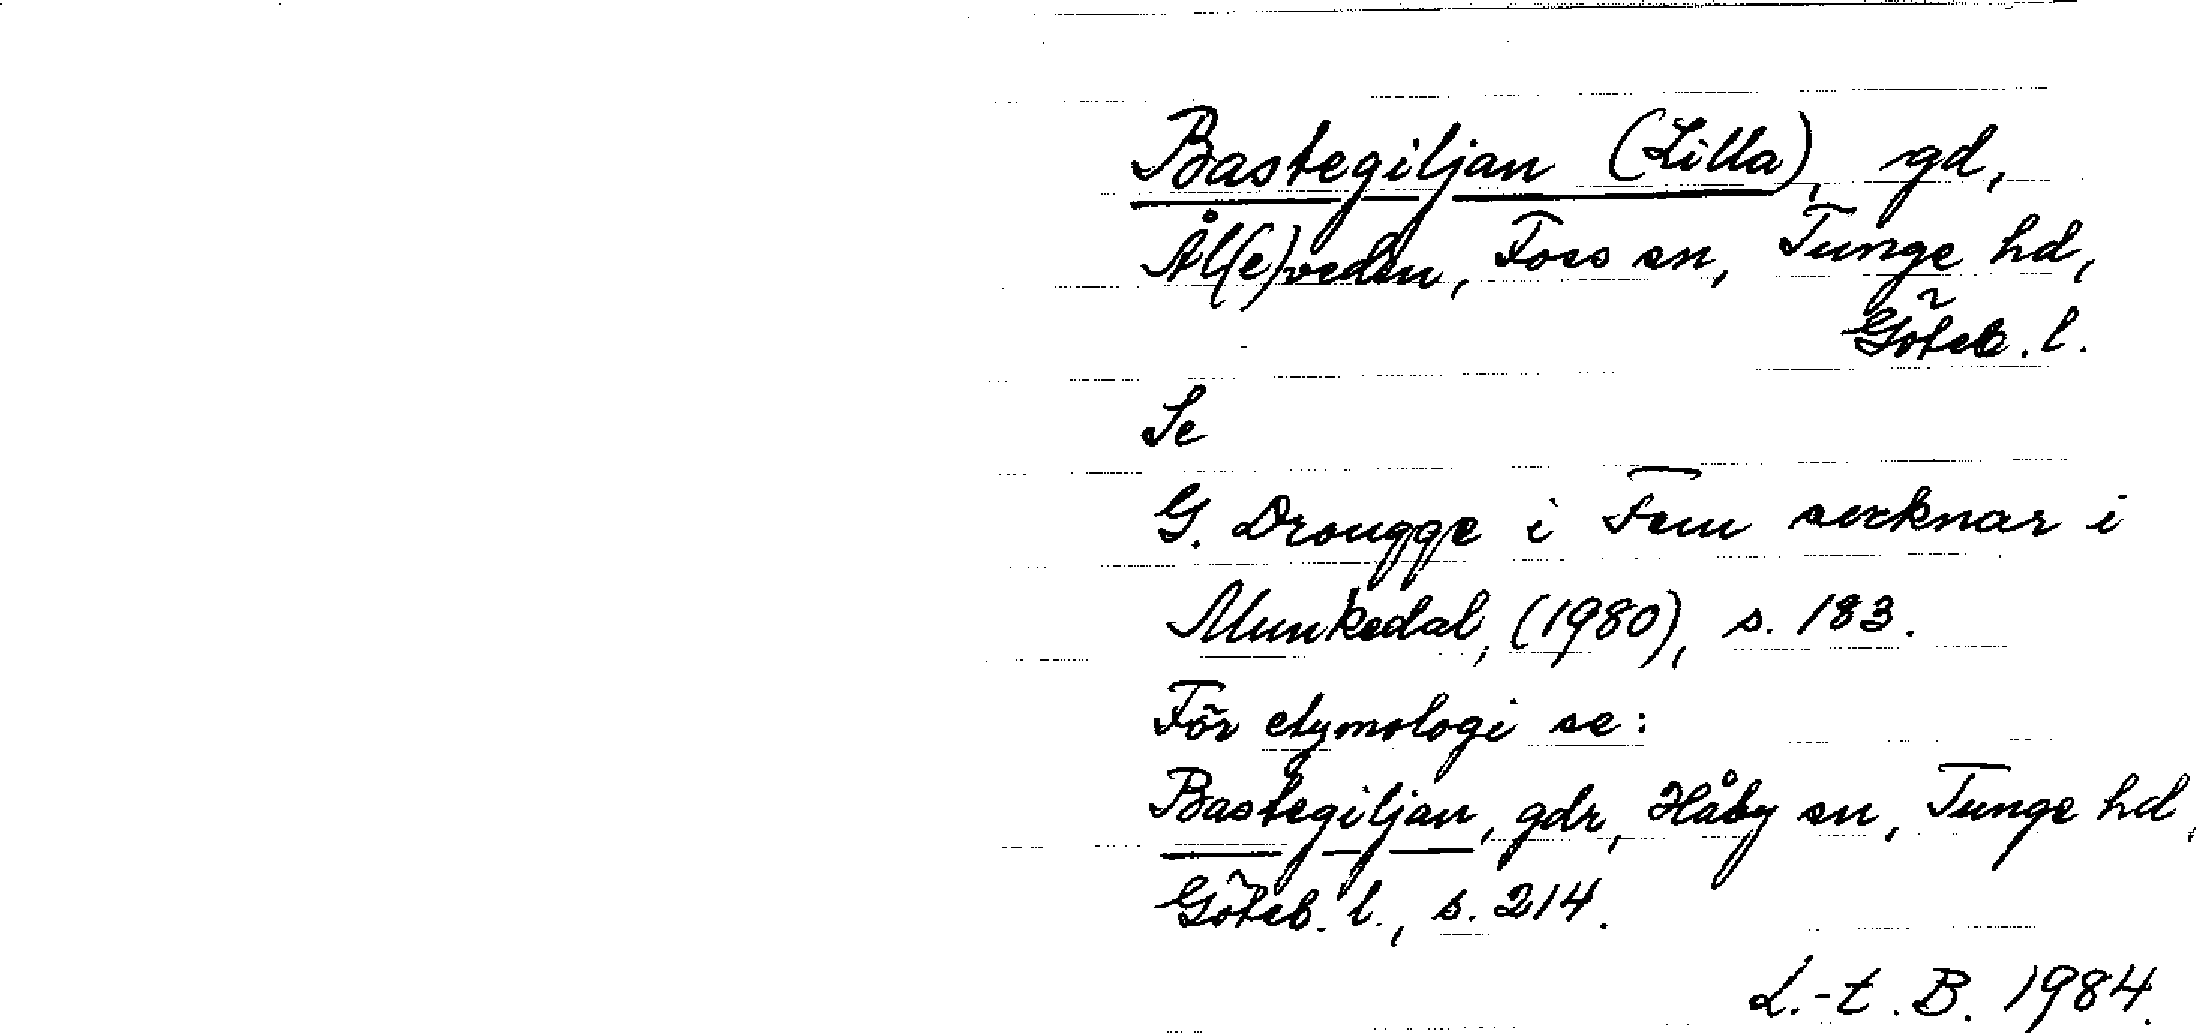 Bastegiljan (Lilla), gd,
Ål(e)veden, Foss sn, Tunge hd,
Göteb. l.
Se
G. Drougge i Fem socknar i
Munkedal, (1980), s. 183.
För etymologi se:
Bastegiljan, gdr, Håby sn, Tunge hd,
Göteb. l., s. 214.
L.-t. B. 1984.